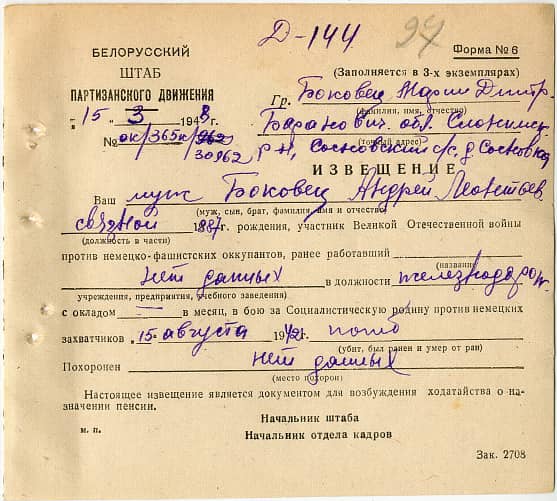 Д-144 97
БЕЛОРУССКИЙ
ШТАБ
ПАРТИЗАНСКОГО ДВИЖЕНИЯ
„15" 3 1948
№ ок/365к/262
30962
Форма № 6
(Заполняется в 3-х экземплярах)
Гр. Боковец Марии Дмитр.
(фамилия, имя, отчество)
Баранович. обл. Слонимск.
(точный адрес)
р-н, Сосновский с/с д. Сосновка
ИЗВЕЩЕНИЕ
Ваш муж Боковец Андрей Леонтьев.
(муж, сын, брат, фамилия, имя и отчество)
связной 1887г. рождения, участник Великой Отечественной войны
(должность в части)
против немецко-фашистских оккупантов, ранее работавший
(название)
нет данных в должности железнодорож.
учреждения, предприятия, учебного заведения)
с окладом — в месяц, в бою за Социалистическую родину против немецких
захватчиков „15" августа 1942г. погиб
(убит, был ранен и умер от ран)
Похоронен нет данных
(место похорон)
Настоящее извещение является документом для возбуждения ходатайства о на-
значении пенсии.
Начальник штаба
м. п. Начальник отдела кадров
Зак. 2708